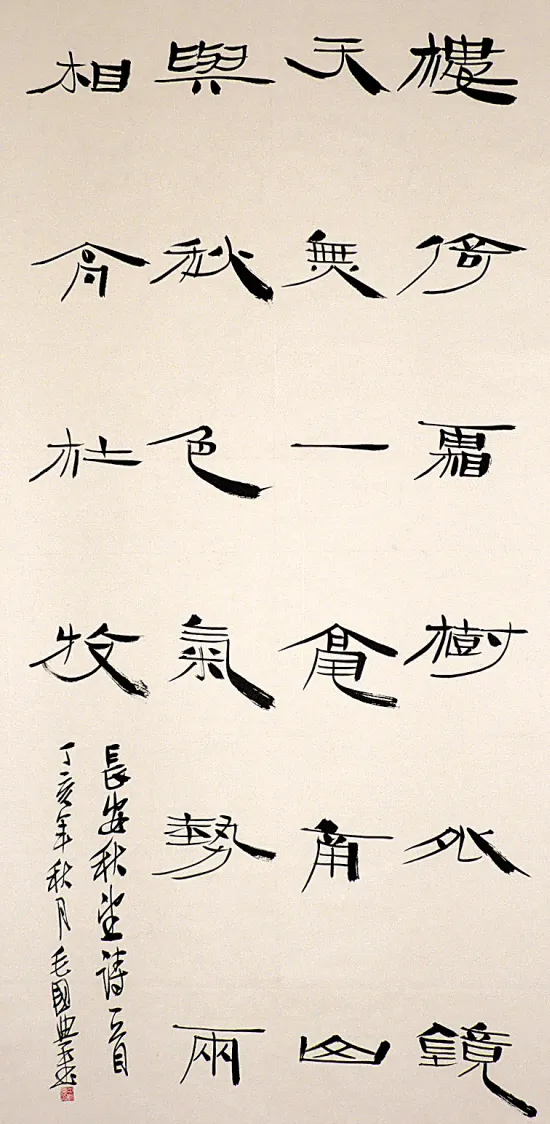 樓倚霜樹外鏡
天無一毫南山
與秋色氣勢兩
相高杜牧
長安秋望詩一首
丁亥年秋月毛國典書